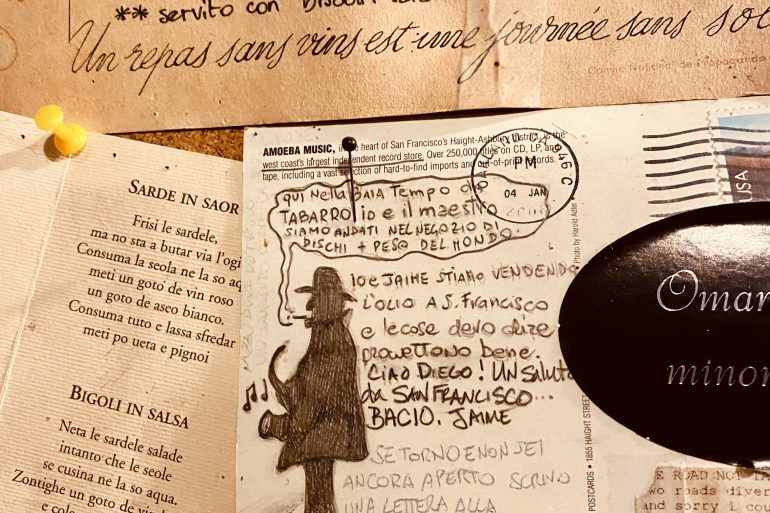 ** servito con
Un repas sans vins est une journée sans
SARDE IN SAOR
Frisi le sardele,
ma no sta a butar via l'ogi
Consuma la seola ne la so aq
meti un goto de vin roso
un goto de aseo bianco.
Consuma tuto e lassa sfredar
meti po ueta e pignoi
BIGOLI IN SALSA
Neta le sardele salade
intanto che le seole
se cusina ne la so aqua.
Zontighe un goto de vin
e cole
AMOEBA MUSIC, in the heart of San Francisco's Haight-Ashbury District, is the
west coast's largest independent record store. Over 250,000 titles on CD, LP, and
tape, including a vast selection of hard-to-find imports and out-of-print records.
QUI NELLA BAIA TEMPO DA
TABARRO IO E IL MAESTRO
SIAMO ANDATI NEL NEGOZIO DI
DISCHI + PESO DEL MONDO
IO E JAIME STIAMO VENDENDO
L'OLIO A S. FRANCISCO
E LE COSE DEVO DIRE
PROMETTONO BENE.
CIAO DIEGO! UN SALUTO
da SAN FRANCISCO...
BACIO. JAIME
SE TORNO E NON SEI
ANCORA APERTO SCRIVO
UNA LETTERA ALLA
946
PM
04 JAN
USA
Photo by Harold Adler
POSTCARDS • 1855 HAIGHT STREET
Omar
minor
THE ROAD NOT TA
Two roads diver
and sorry I cou